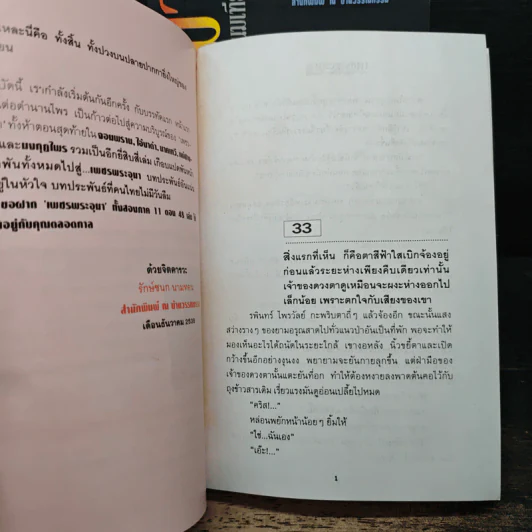 สำนักพิมพ์ ณ บ้านวรรณกรรม
เหละนี่คือ ทั้งสิ้น ทั้งปวงบนปลายปากกา
บัดนี้ เรากำลังเริ่มต้นกันอีกครั้ง กับบรรทัดแรก
ต่อตำนานไพร เป็นก้าวต่อไปสู่ความบริบูรณ์ของ
ทั้งห้าตอนสุดท้ายใน จอมพราน, ไอ้งาดำ,
และมงกุฎไพร รวมเป็นอีกยี่สิบสี่เล่ม
พันทั้งหมดไปสู่...เพชรพระอุมา
ในหัวใจ บทประพันธ์ที่คนไทยไม่มีวันลืม
ขอฝาก 'เพชรพระอุมา' ทั้งสองภาค 11 ตอน 48 เล่ม
อยู่กับคุณตลอดกาล
ด้วยจิตคารวะ
รักษ์ชนก นามทอน
สำนักพิมพ์ ณ บ้านวรรณกรรม
เดือนธันวาคม
33
สิ่งแรกที่เห็น ก็คือตาสีฟ้าใสเบิกจ้องอยู่
ก่อนแล้วระยะห่างเพียงคืบเดียวเท่านั้น
เจ้าของดวงตาดูเหมือนจะผงะห่างออกไป
เล็กน้อย เพราะตกใจกับเสียงของเขา
รพินทร์ ไพรวัลย์ กะพริบตาถี่ๆ แล้วจ้องอีก ขณะนั้นแสง
สว่างรางๆ ของยามอรุณสาดไปทั่วแนวป่าอันเป็นที่พัก พอจะทำให้
มองเห็นอะไรได้ถนัดในระยะใกล้ เขางอหลัง นิ้วขยี้ตาและเปิด
กว้างขึ้นอีกอย่างงุนงง พยายามจะยันกายลุกขึ้น แต่ฝ่ามือของ
เจ้าของดวงตานั้นแตะยันที่อก ทำให้ต้องหงายลงพาดต้นคอไว้กับ
ถุงข้าวสารเดิม เรี่ยวแรงมันดูอ่อนเปลี้ยไปหมด
"คริส!..."
หล่อนพยักหน้าน้อยๆ ยิ้มให้
"ใช่...ฉันเอง"
"เอ๊ะ!..."
1